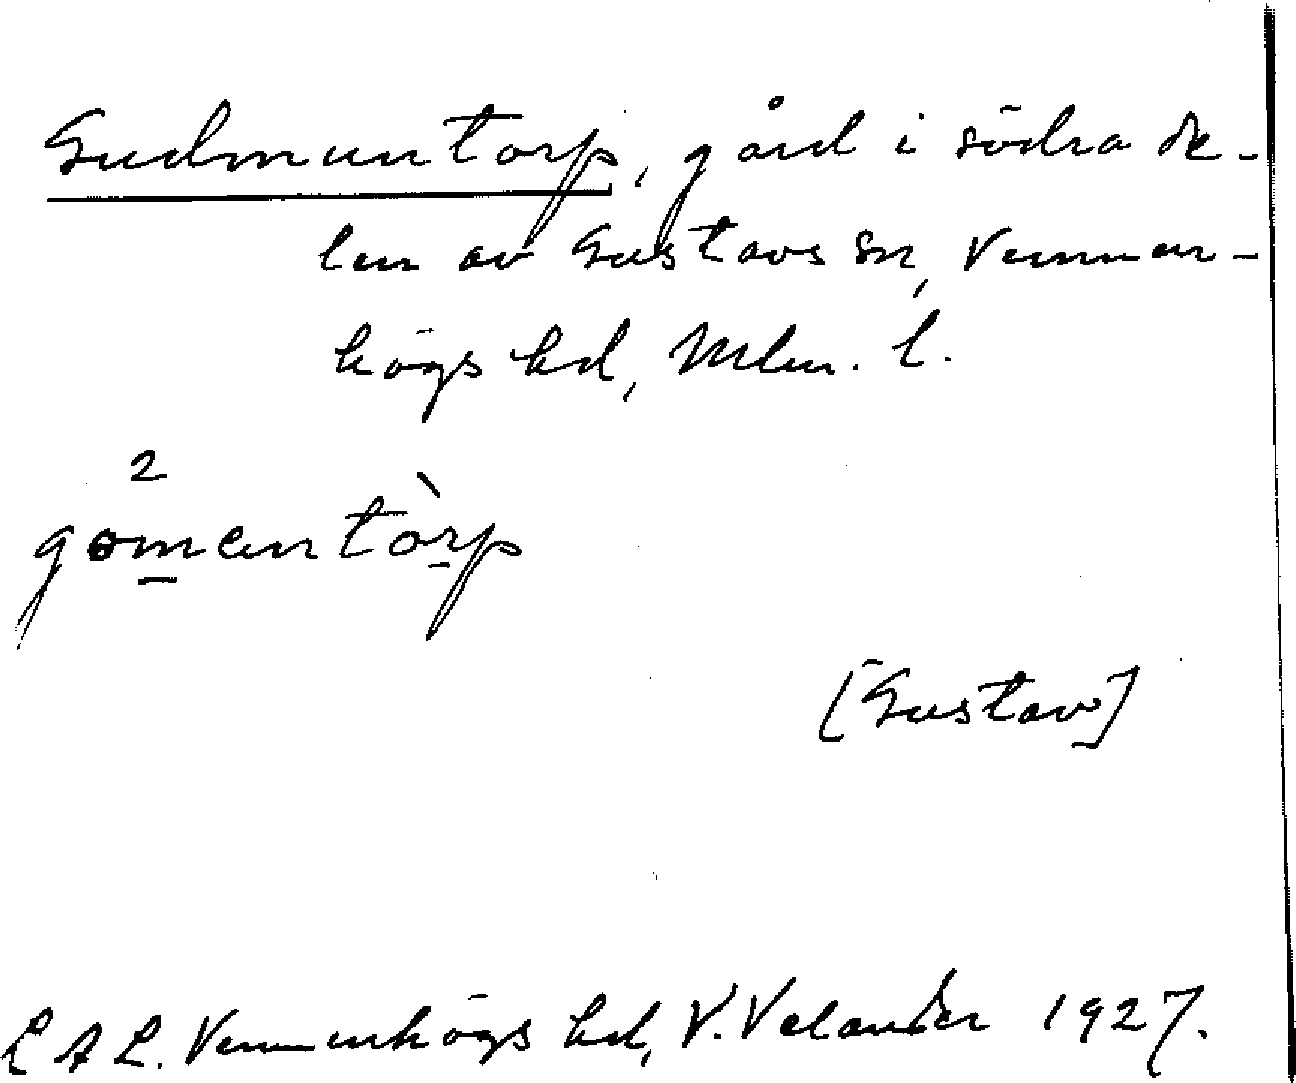 Gudmuntorp, gård i södra de-
len av Gustavs sn, Vemmen-
högs hd, Mlm. l.
2
gomentòrp
[Gustav]
L A L. Vemmenhögs hd, V. Velander 1927.